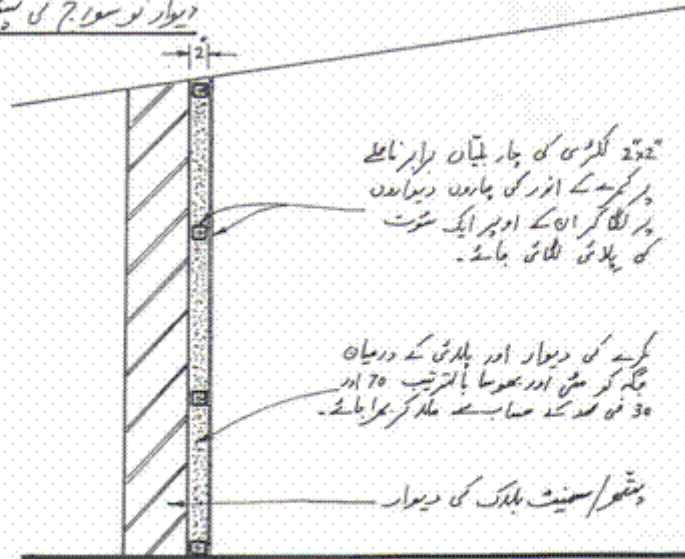 دیوار کو سورج کی
2"
2"x2" لکڑی کی چار بلیاں برابر فاصلے
پر کمرے کے اندر کی چاروں دیواروں
پر لگا کر ان کے اوپر ایک سوت
کی پلائی لگائی جائے۔
کمرے کی دیوار اور پلائی کے درمیان
جگہ کو مٹی اور بھوسا بالترتیب 70 اور
30 فی صد کے حساب سے ملا کر بھرا جائے۔
پتھر/سیمنٹ بلاک کی دیوار